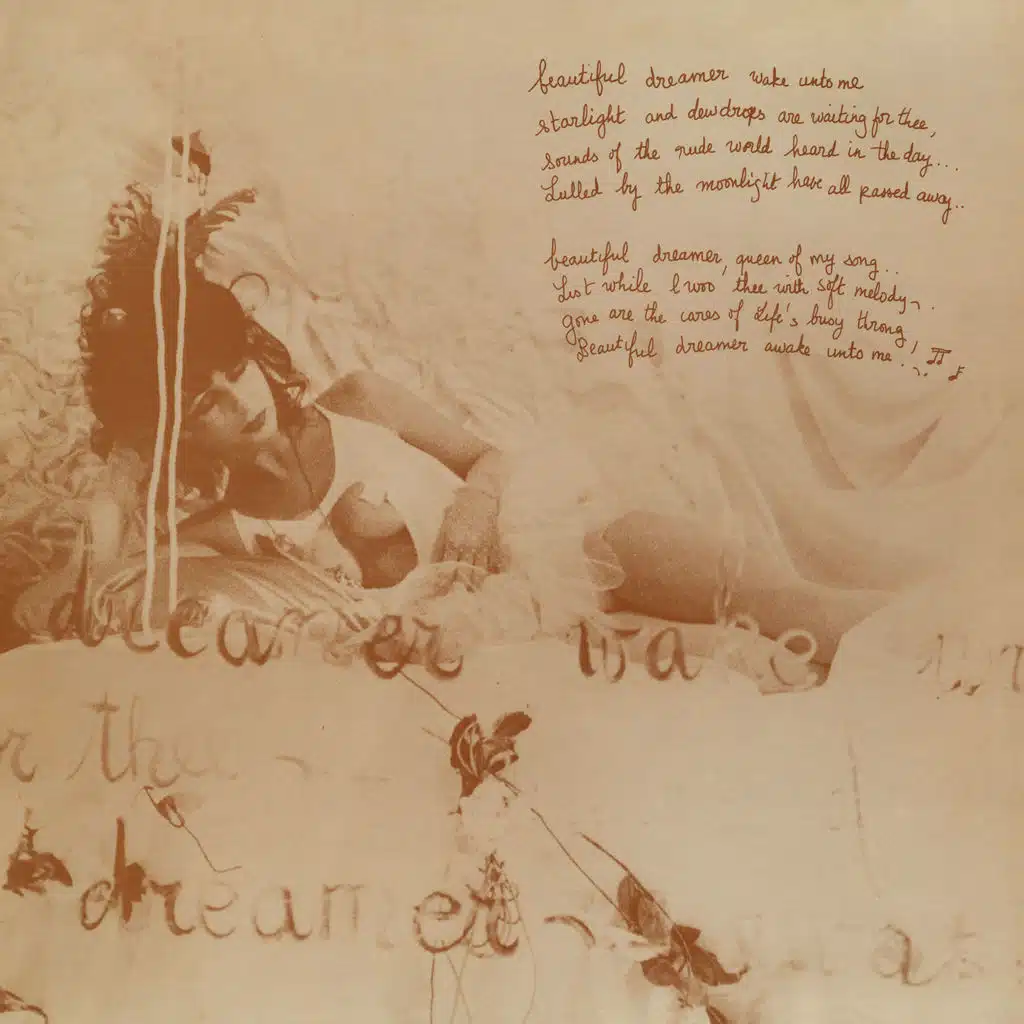 beautiful dreamer wake unto me
starlight and dewdrops are waiting for thee,
sounds of the rude world heard in the day...
Lulled by the moonlight have all passed away..
beautiful dreamer, queen of my song..
List while I woo thee with soft melody~.
Gone are the cares of Life's busy throng,
Beautiful dreamer awake unto me..
dreamer wake un
r thee
dreamer